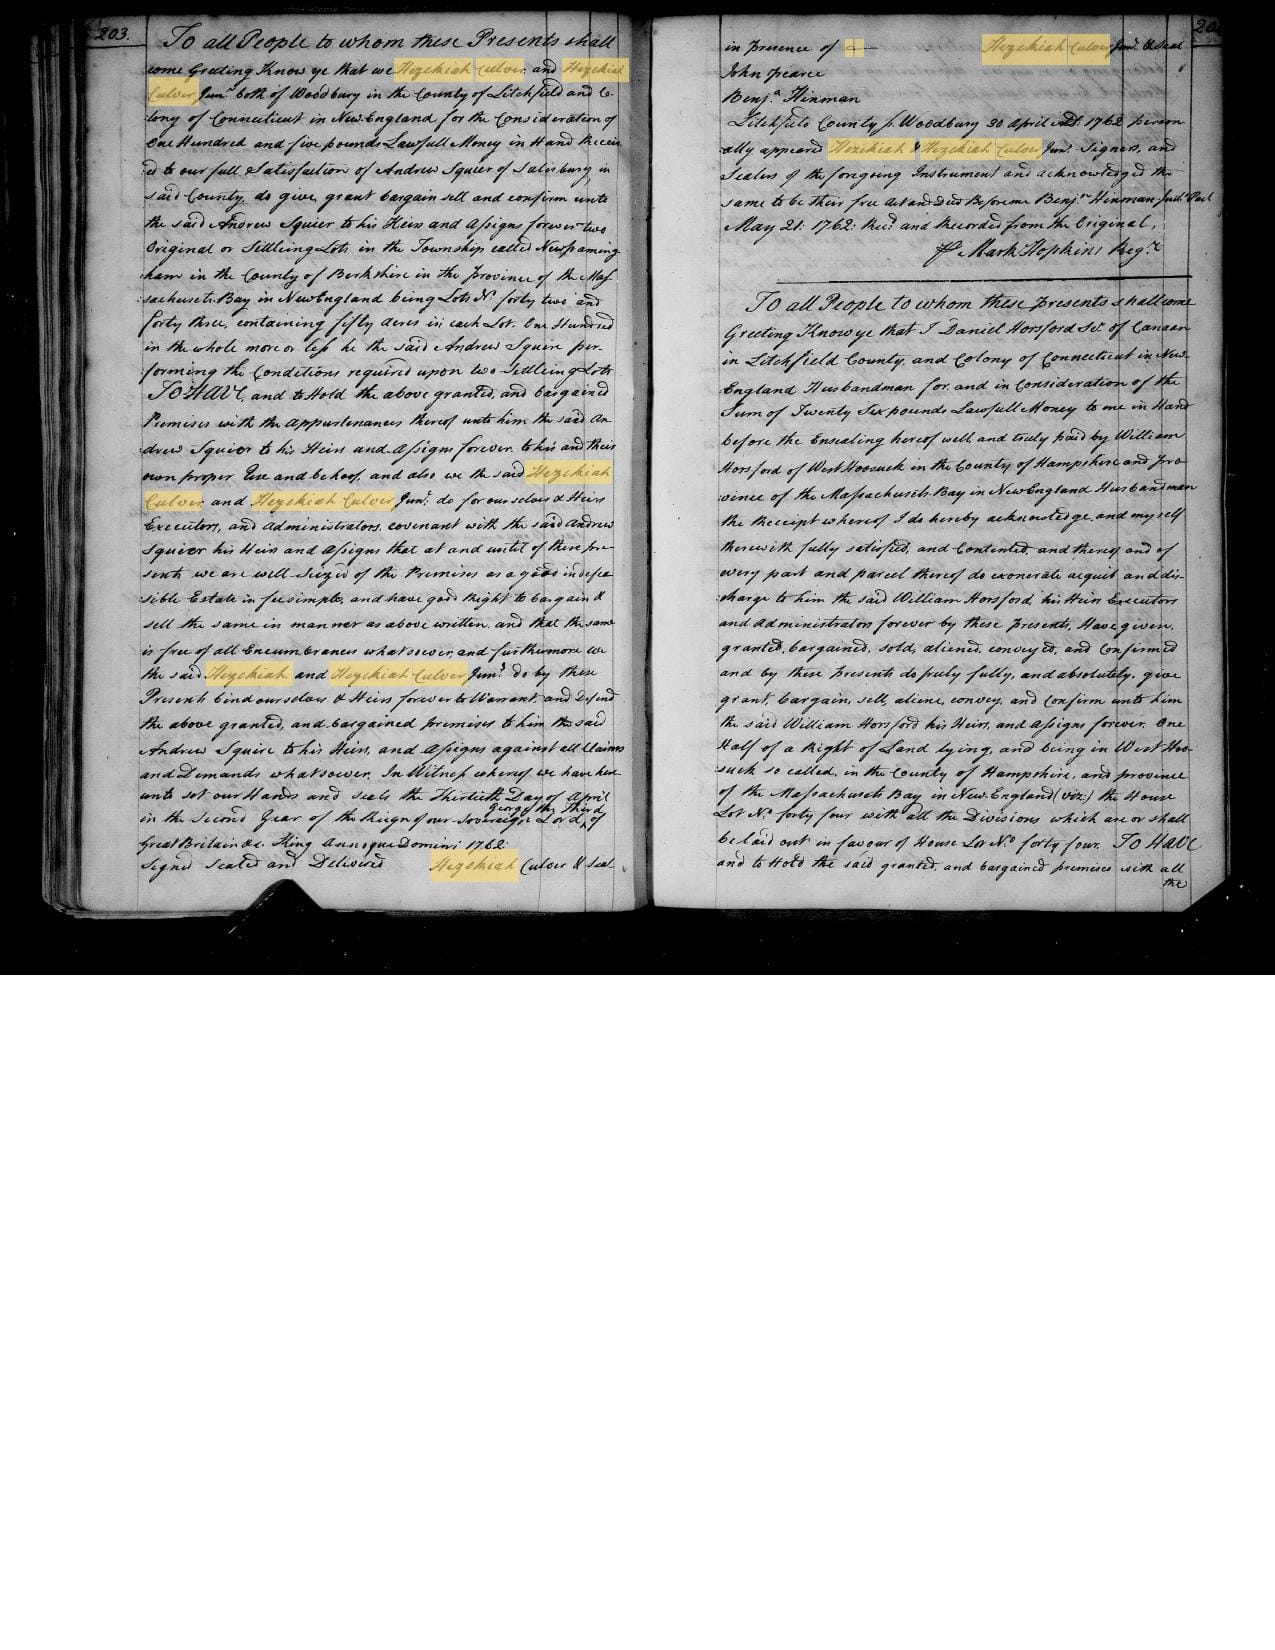 203.
To all People to whom these Presents shall
come Greeting Know ye that we Hezekiah Culver, and Hezekiah
Culver Junr. both of Woodbury in the County of Litchfield and Co-
lony of Connecticut in New England for the Consideration of
One Hundred and five pounds Lawfull Money in Hand Receiv-
:ed to our full Satisfaction of Andrew Squier of Salisbury in
said County, do give, grant bargain sell and confirm unto
the said Andrew Squier to his Heirs and Assigns forever two
Original or Settleing Lots in the Township called New framing-
:ham in the County of Berkshire in the Province of the Mas-
:sachusets Bay in New England being Lots No. forty two and
forty three, containing fifty acres in each Lot. One Hundred
in the whole more or less he the said Andrew Squire per-
:forming the Conditions required upon two Settleing Lots
TO HAVE, and to Hold the above granted, and bargained
Premises with the appurtenances thereof unto him the said An-
drew Squier to his Heirs and Assigns forever to his and their
own proper Use and behoof, and also we the said Hezekiah
Culver and Hezekiah Culver Junr. do for ourselves & Heirs
Executors, and Administrators, covenant with the said Andrew
Squier his Heirs and Assigns that at and until of these pre-
:sents we are well Seized of the Premises as a good indefea-
:sible Estate in fee simple, and have good Right to bargain &
sell the same in manner as above written, and that the same
is free of all Encumbrances whatsoever, and furthermore we
the said Hezekiah and Hezekiah Culver Junr. do by these
Presents bind ourselves & Heirs forever to Warrant, and Defend
the above granted, and bargained premises to him the said
Andrew Squire to his Heirs, and Assigns against all Claims
and Demands whatsoever. In Witness whereof we have here-
unto set our Hands and seals the Thirtieth Day of April
George the Third
in the Second Year of the Reign of our Sovereign Lord, of
Great Britain &c. King Annoque Domini 1762.
Signed Sealed and Delivered Hezekiah Culver & Seal
in Presence of Hezekiah Culver Junr. & Seal
John Pearce
Benja. Hinman
Litchfield County ss. Woodbury 30 April 1762 person
ally appeared Hezekiah & Hezekiah Culver Junr. Signers, and
Sealers of the foregoing Instrument and acknowledged the
same to be their free Act and Deed Before me Benja. Hinman Just. Pace
May 21: 1762: Recd. and Recorded from the Original,
Mark Hopkins Regr.
To all People to whom these presents shall come
Greeting Know ye that I Daniel Horsford Sr. of Canaan
in Litchfield County, and Colony of Connecticut in New-
England Husbandman for, and in Consideration of the
Sum of Twenty Six pounds Lawfull Money to me in Hand
before the Ensealing hereof well, and truly paid by William
Horsford of West Hoosuck in the County of Hampshire and Pro
vince of the Massachusets Bay in New England Husbandman
the Receipt whereof I do hereby acknowledge, and myself
therewith fully satisfied, and Contented, and thereof and of
every part and parcel thereof do exonerate acquit, and dis-
:charge to him the said William Horsford, his Heirs Executors
and Administrators forever by these Presents, Have given,
granted, bargained, sold, aliened, conveyed, and Confirmed
and by these presents do freely fully, and absolutely, give
grant, bargain, sell, aliene, convey, and Confirm unto him
the said William Horsford his Heirs, and Assigns forever. One
Half of a Right of Land lying, and being in West Hoo-
suck so called, in the County of Hampshire, and province
of the Massachusets Bay in New England (viz:) the House
Lot No. forty four with all the Divisions which are or shall
be laid out in favour of House Lot No. forty four. TO HAVE
and to Hold the said granted, and bargained premises with all
the